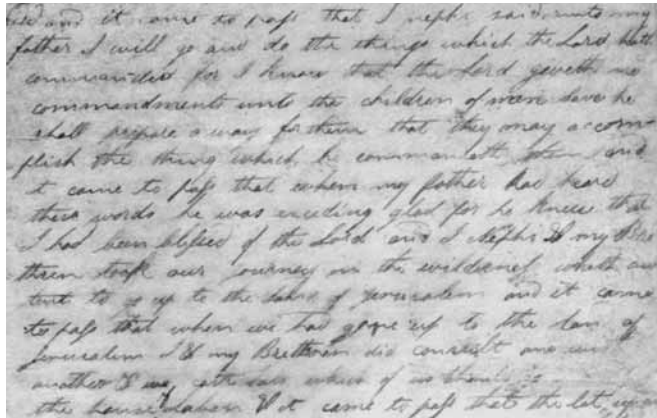 and it came to pass that I nephi said unto my
father I will go and do the things which the Lord hath
commanded for I know that the Lord geveth no
commandments unto the children of men save he
shall prepare a way for them that they may accom
plish the thing which he commandeth them and
it came to pass that when my father had heard
these words he was exceding glad for he knew that
I had been blessed of the Lord and I Nephi & my Bre
thren took our journey in the wilderness with our
tent to go up to the land of Jerusalem and it came
to pass that when we had gone up to the lan of
Jerusalem I & my Brethren did consult one with
another & we cast lots which of us should
the house Laban & it came to pass that the lot upon